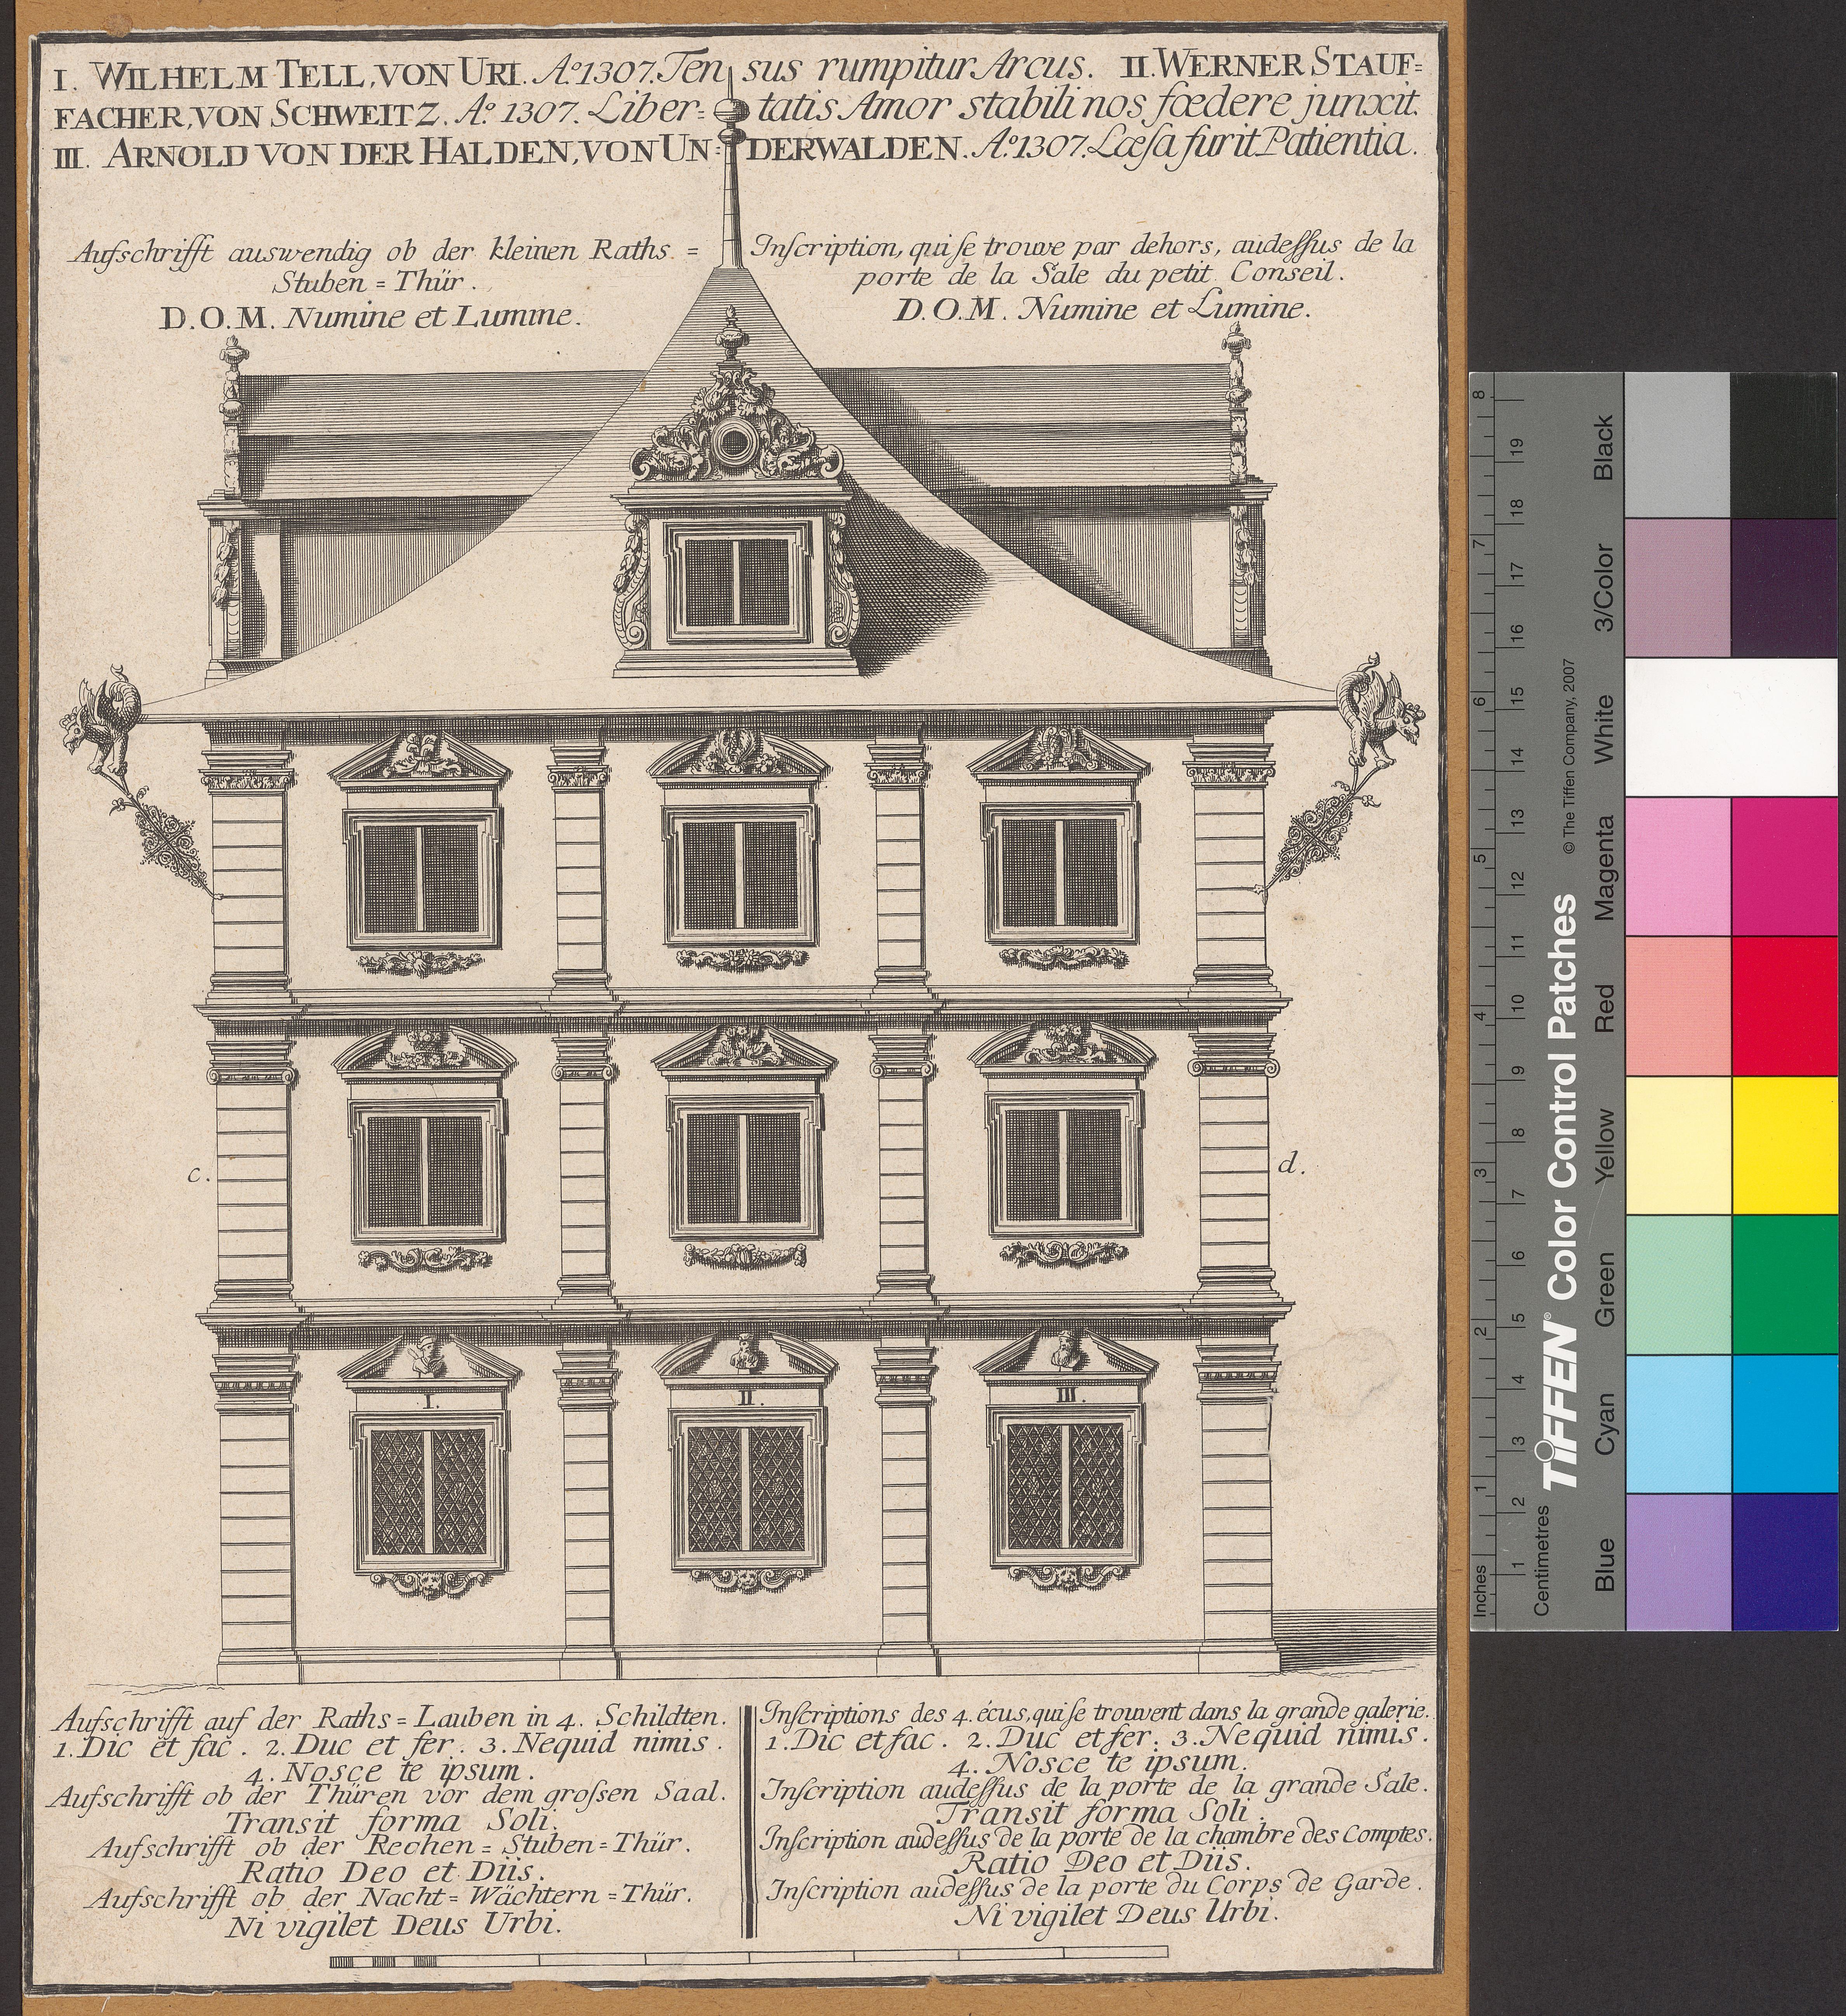 I. WILHELM TELL, VON URI. Aº 1307. Tensus rumpitur Arcus. II. WERNER STAUF=
FACHER, VON SCHWEITZ. Aº 1307. Liber=tatis Amor stabili nos fœdere junxit.
III. ARNOLD VON DER HALDEN, VON UN=DERWALDEN. Aº 1307. Læſa furit Patientia.
Aufschrifft auswendig ob der kleinen Raths =
Stuben = Thür.
D.O.M. Numine et Lumine.
Inſcription, qui ſe trouve par dehors, audeſſus de la
porte de la Sale du petit Conseil.
D.O.M. Numine et Lumine.
c.
d.
I.
II.
III.
Aufschrifft auf der Raths = Lauben in 4. Schildten.
1. Dic et fac. 2. Duc et fer. 3. Nequid nimis.
4. Nosce te ipsum.
Aufschrifft ob der Thüren vor dem groſsen Saal.
Transit forma Soli.
Aufschrifft ob der Rechen = Stuben = Thür.
Ratio Deo et Diis.
Aufschrifft ob der Nacht = Wächtern = Thür.
Ni vigilet Deus Urbi.
Inſcriptions des 4. écus, qui ſe trouvent dans la grande galerie.
1. Dic et fac. 2. Duc et fer. 3. Nequid nimis.
4. Nosce te ipsum.
Inſcription audeſſus de la porte de la grande Sale.
Transit forma Soli.
Inſcription audeſſus de la porte de la chambre des Comptes.
Ratio Deo et Diis.
Inſcription audeſſus de la porte du Corps de Garde.
Ni vigilet Deus Urbi.
Inches
1 2 3 4 5 6 7 8
Centimetres
1 2 3 4 5 6 7 8 9 10 11 12 13 14 15 16 17 18 19
TIFFEN® Color Control Patches
© The Tiffen Company, 2007
Blue
Cyan
Green
Yellow
Red
Magenta
White
3/Color
Black